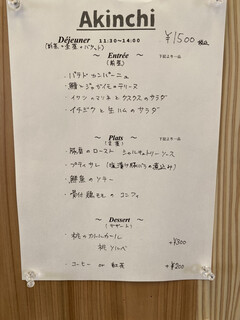 Akinchi
Déjeuner 11:30~14:00
¥1500 税込
(前菜+主菜+バケット)
~ Entrée ~
(前菜)
下記より一品
・パテド カンパーニュ
・鰻とジャガイモのテリーヌ
・イワシのマリネとクスクスのサラダ
・イチジクと生ハムのサラダ
~ Plats ~
(主菜)
下記より一品
・豚肩のロースト シャルキュトリーソース
・プティサレ (塩漬け豚バラの煮込み)
・鮮魚のソテー
・骨付鶏モモのコンフィ
~ Dessert ~
(デザート)
・桃のカトルカール
桃ソルベ
+¥300
・コーヒー or 紅茶 +¥200